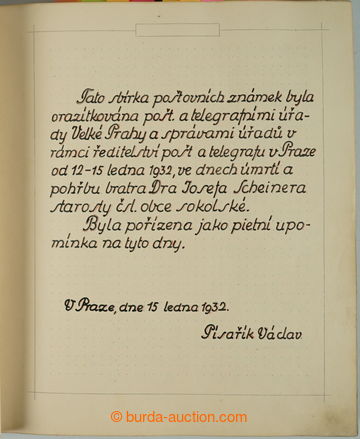 Tato sbírka poštovních známek byla
orazítkována pošt. a telegrafními úřa-
dy Velké Prahy a správami úřadů v
rámci ředitelství pošt a telegrafu v Praze
od 12-15 ledna 1932, ve dnech úmrtí a
pohřbu bratra Dra Josefa Scheinera
starosty čsl. obce sokolské.
Byla pořízena jako pietní upo-
mínka na tyto dny.
V Praze, dne 15 ledna 1932.
Písařík Václav
© burda-auction.com